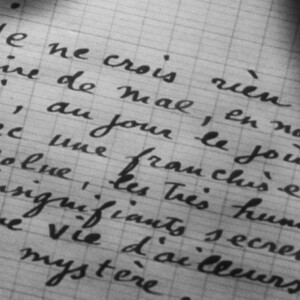 Je ne crois rien
ire de mal, en n
, au jour le jou
c une franchise
olue, les très hum
nsignifiants secre
e vie d'ailleurs
mystère.